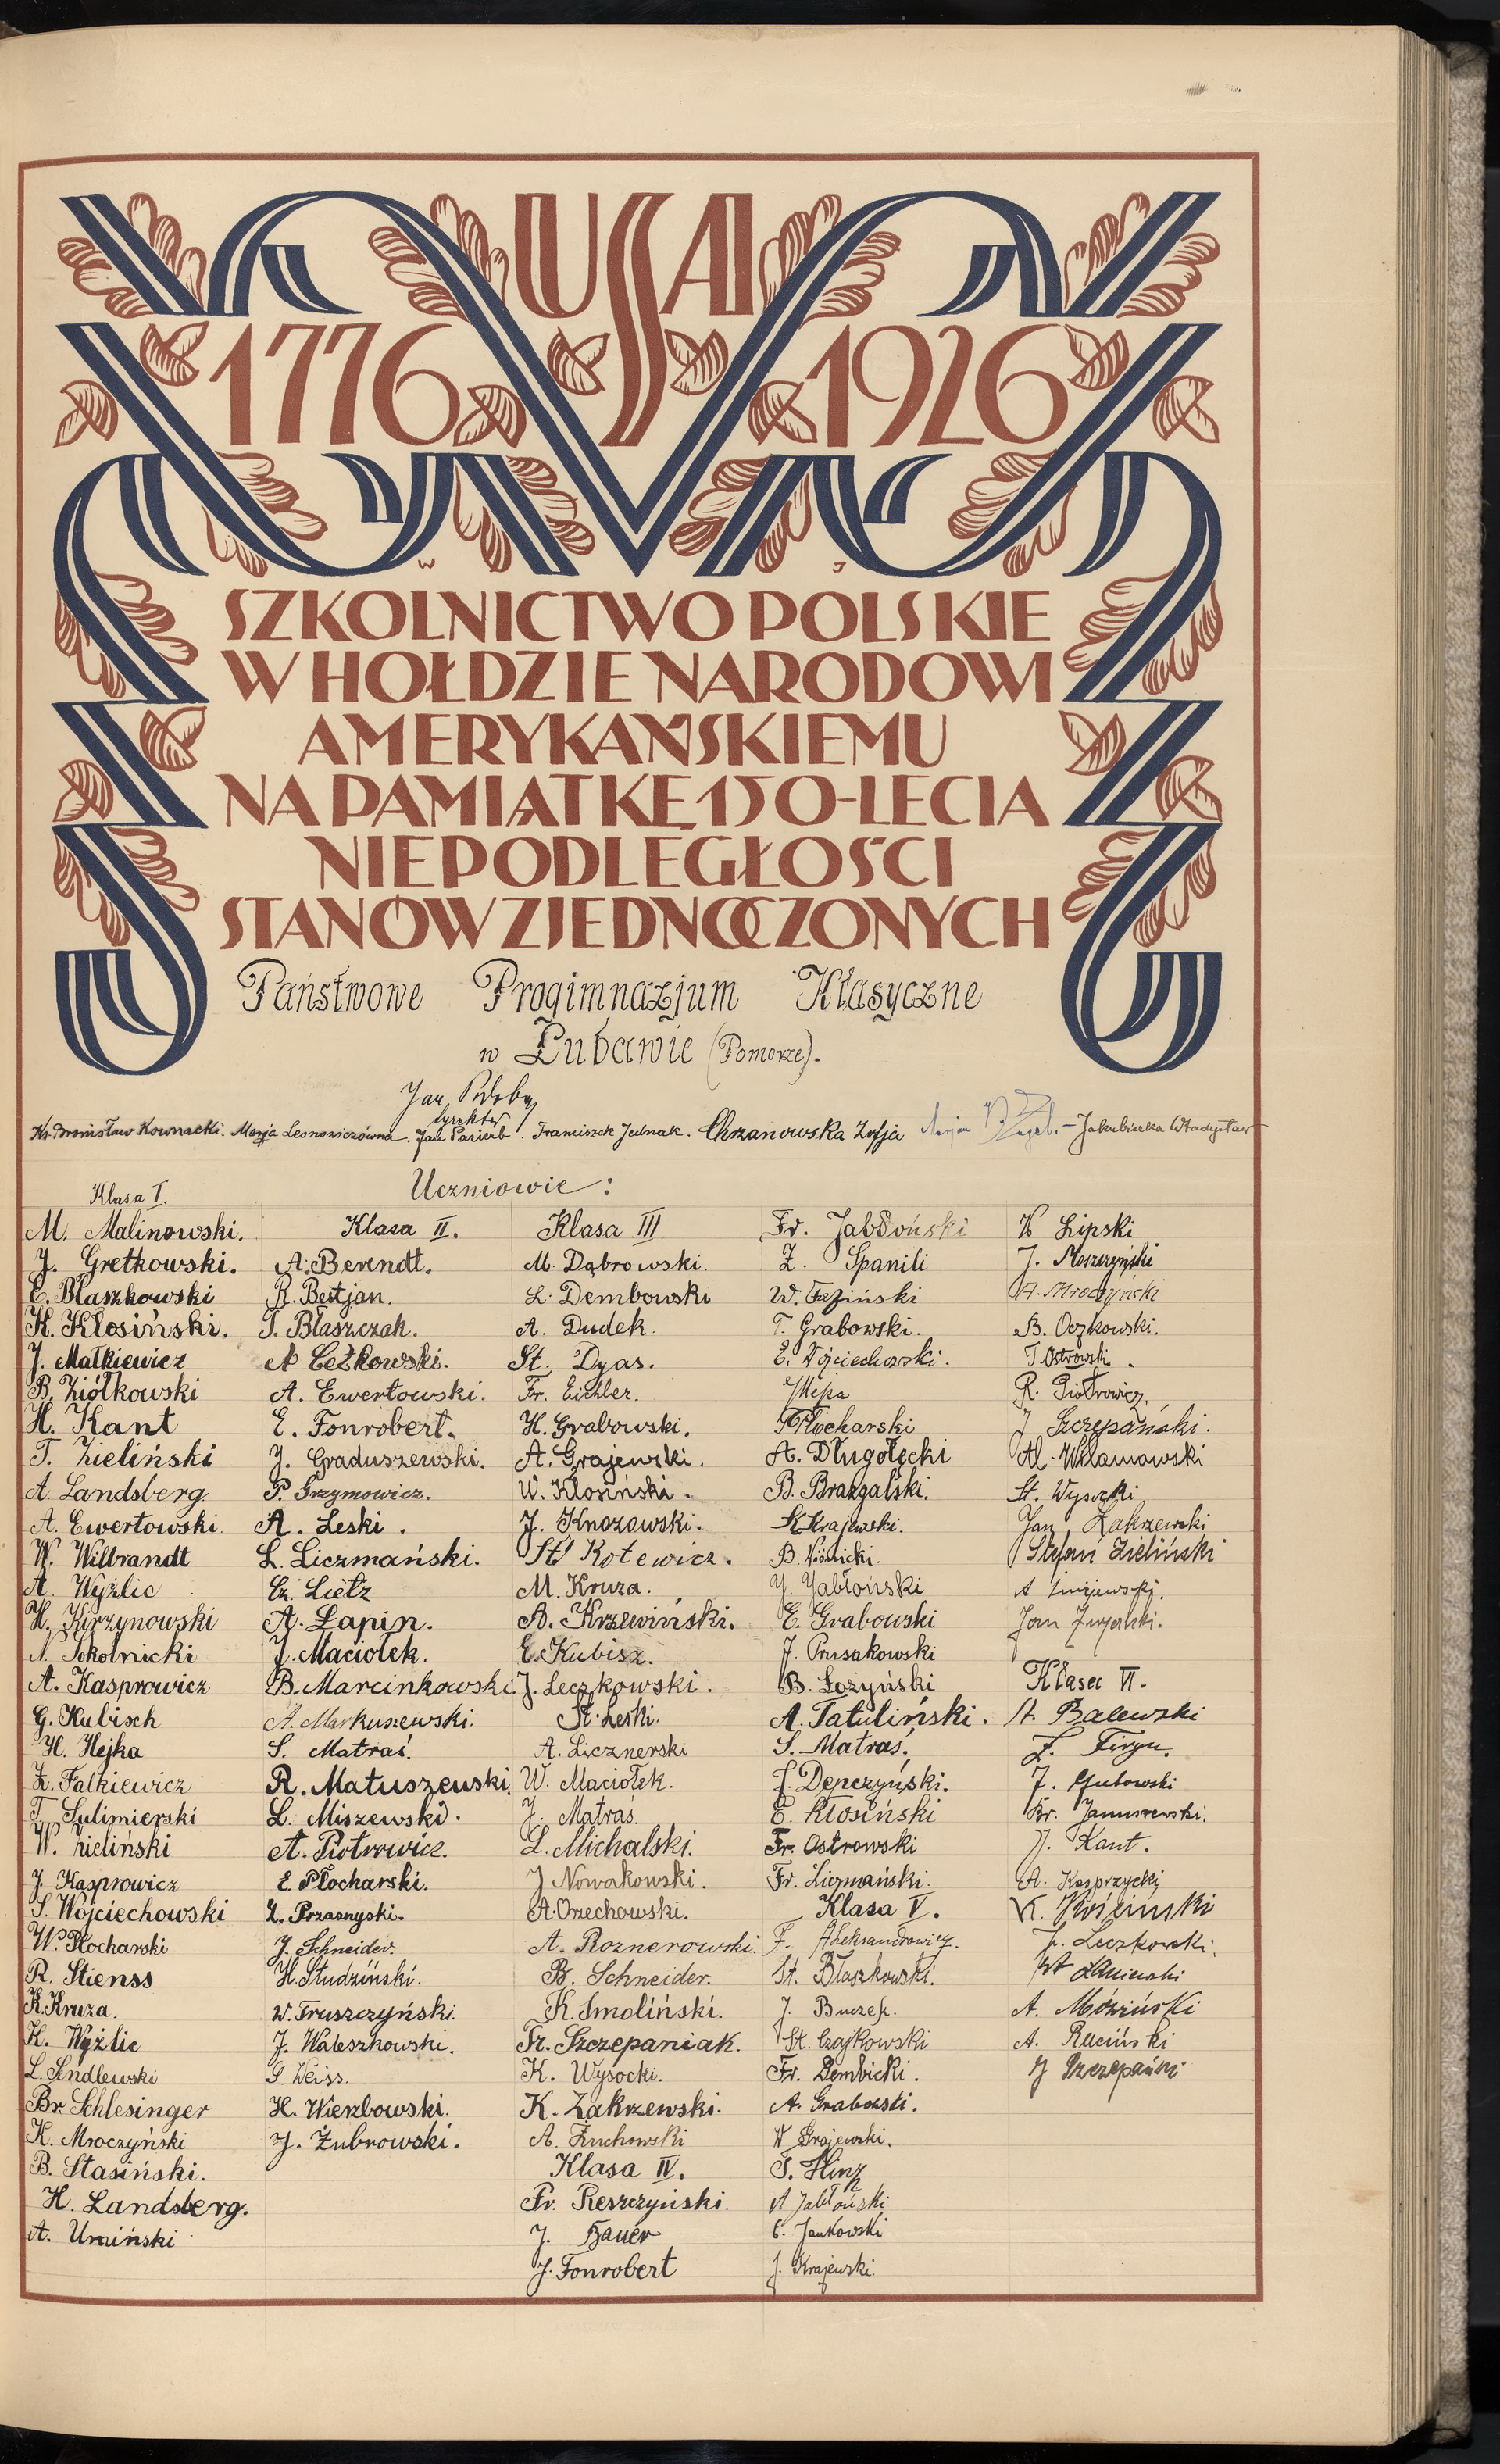 USA
1776 1926
W J
SZKOLNICTWO POLSKIE
W HOŁDZIE NARODOWI
AMERYKAŃSKIEMU
NA PAMIĄTKĘ 150-LECIA
NIEPODLEGŁOŚCI
STANÓW ZJEDNOCZONYCH
Państwowe Progimnazjum Klasyczne
w Lubawie (Pomorze).
Jan
dyrektor
Ks. Bronisław Kownacki. Marja Leonowiczówna. Jan Pasierb. Franciszek Jednak. Chrzanowska Zofja Jakubiurka Władysław
Uczniowie:
Klasa I.
M. Malinowski.
J. Gretkowski.
E. Błaszkowski
K. Kłosiński.
J. Małkiewicz
B. Ziółkowski
H. Kant
T. Zieliński
A. Landsberg.
A. Ewertowski.
W. Wilbrandt
A. Wyżlic
H. Kirzynowski
N. Sokolnicki
A. Kasprowicz
G. Kubisch
H. Hejka
Z. Falkiewicz
T. Sulimierski
W. Zieliński
J. Kasprowicz
S. Wojciechowski
W. Płocharski
R. Stienss
K. Kruza.
K. Wyżlic
L. Sendlewski
Br. Schlesinger
K. Mroczyński
B. Stasiński.
H. Landsberg.
A. Umiński
Klasa II.
A. Berendt.
R. Bestjan.
T. Błaszczak.
A Ceżkowski.
A. Ewertowski.
E. Fonrobert.
J. Graduszewski.
P. Grzymowicz.
A. Leski.
L. Liczmański.
Cz. Lietz
A. Lapin.
J. Maciołek.
B. Marcinkowski.
A. Markuszewski.
S. Matraś.
R. Matuszewski.
L. Miszewski.
A. Piotrowicz.
E. Płocharski.
Z. Przasnyski.
J. Schneider.
H. Studziński.
W. Truszczyński.
J. Waleszkowski.
S. Weiss.
H. Wierzbowski.
J. Żubrowski.
Klasa III
M. Dąbrowski.
L. Dembowski
A. Dudek.
St. Dyas.
Fr. Eichler.
H. Grabowski.
A. Grajewski.
W. Kłosiński.
J. Knozowski.
St Kotewicz.
M. Kruza.
A. Krzewiński.
E. Kubisz.
J. Leczkowski.
St. Leski.
A. Licznerski
W. Maciołek.
J. Matraś.
L. Michalski.
J Nowakowski.
A. Orzechowski.
A. Roznerowski.
B. Schneider.
K. Smoliński.
Fr. Szczepaniak.
K. Wysocki.
K. Zakrzewski.
A. Żuchowski
Klasa IV.
Fr. Reszczyński.
J. Bauer
J. Fonrobert
Fr. Jabłoński
Z. Spanili
W. Feziński
T. Grabowski.
E. Wojciechowski.
Mejka
Płocharski
A. Długołęcki
B. Brazgalski.
St Krajewski.
B. Wiśnicki.
J. Jabłoński
E. Grabowski
J. Prusakowski
B. Łożyński
A. Tatuliński.
S. Matraś.
J. Depczyński.
E. Kłosiński
Fr. Ostrowski
Fr. Liczmański.
Klasa V.
F. Aleksandrowicz.
St. Błaszkowski.
J. Buczek.
St. Czajkowski
Fr. Dembicki.
A. Grabowski.
W Grajewski.
S. Hinz
A Jabłoński
E. Jankowski
J. Krajewski.
K Lipski
J. Moszczyński
A. Mroczyński
B. Oczkowski.
T. Ostrowski.
R. Piotrowicz.
J Szczepański.
Al. Wilamowski
St. Wysocki
Jan Zakrzewski
Stefan Zieliński
A Żmijewski.
Jan
Klasa VI.
St. Balewski
Z. Firyn.
J. Gutowski
Br. Januszewski.
J. Kant.
A. Kasprzycki
K. Koźmiński
J. Leczkowski.
A. Móziński
A. Ruciński
J Szczepański